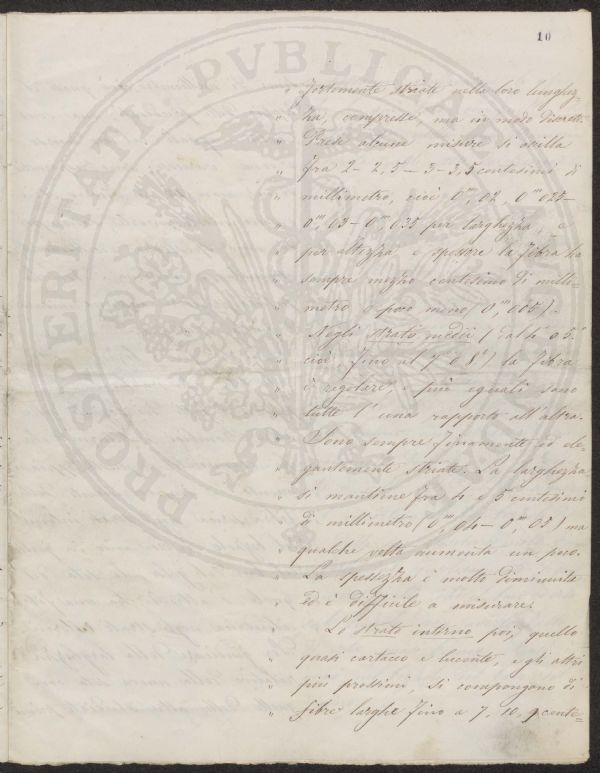 10
" fortemente striate nella loro lunghez=
" za, compresse, ma in modo
" Prese alcune misure si oscilla
" fra 2 - 2,5 - 3 - 3,5 centesimi di
" millimetro, cioè 0,m02, 0,m025-
" 0,m03 - 0,m035 per larghezza, e
" per altezza e spessore la fibra ha
" sempre mezzo centesimo di milli=
" metro o poco meno (0,m005).
" Negli strati medii (dal 4° o 5°
" cioè, fino al 7° o 8°) la fibra
" è regolare, e più eguali sono
" tutte l'una rapporto all'altra.
" Sono sempre finamente ed ele=
" gantemente striate. La larghezza
" si mantiene fra 4 e 5 centesimi
" di millimetro (0,m04 - 0,m05) ma
" qualche volta aumenta un poco.
" La spessezza è molto diminuita
" ed è difficile a misurare.
" Lo strato interno poi, quello
" quasi cartaceo e lucente, e gli altri
" più prossimi, si compongono di
" fibre larghe fino a 7, 10, 9 cente=
PROSPERITATI PVBLICAE